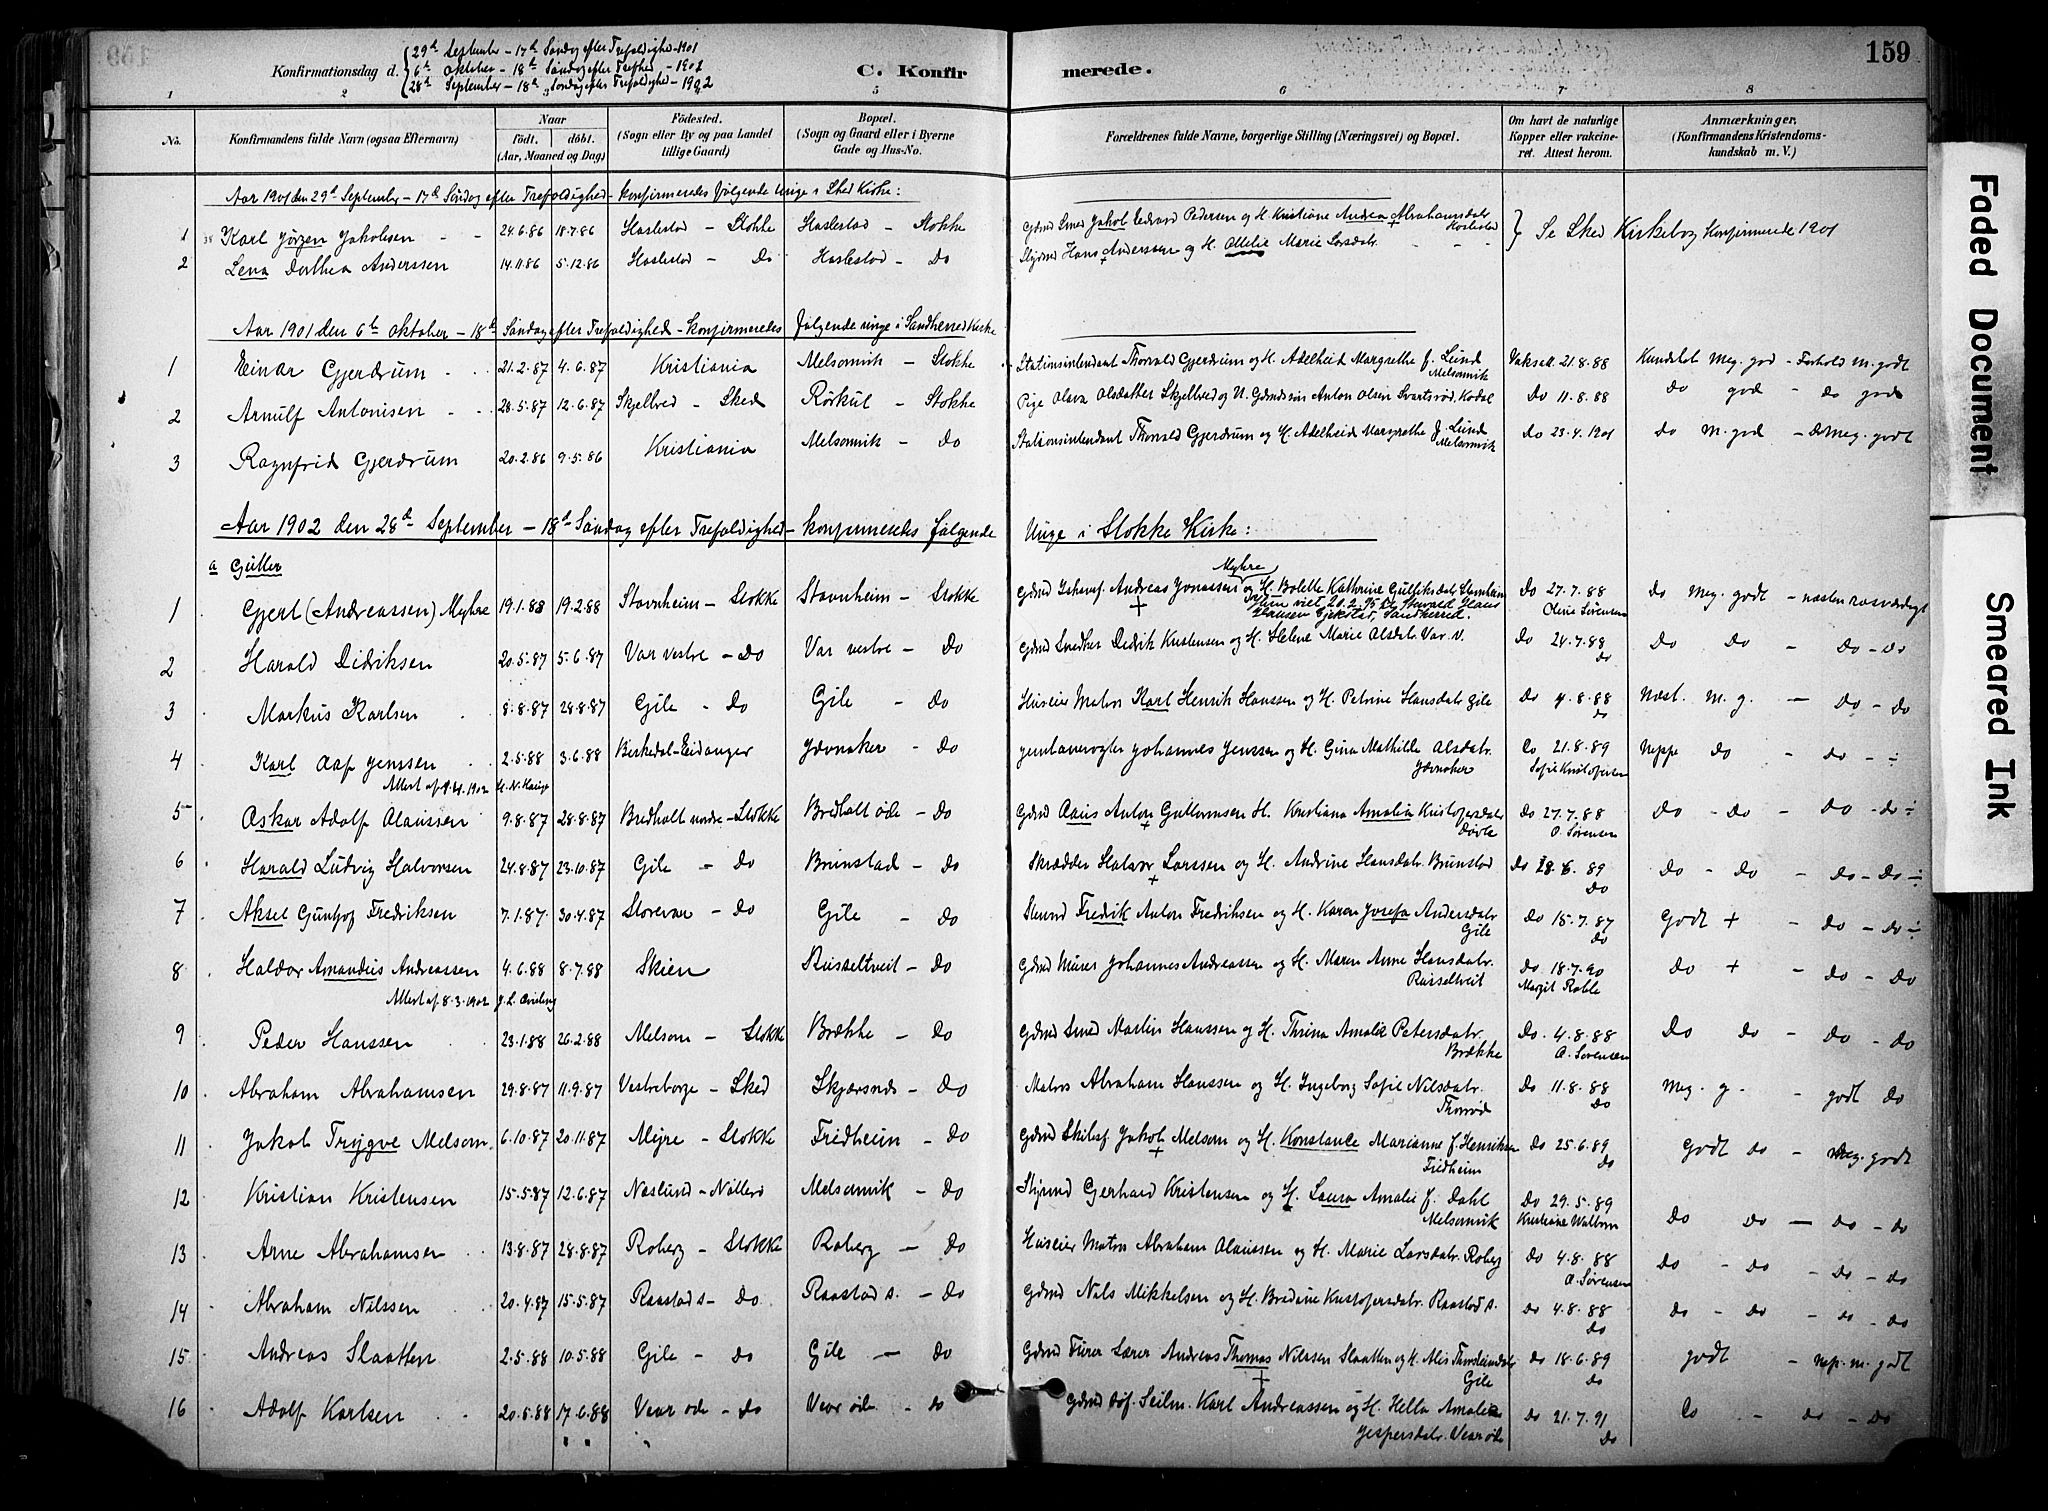 159
Konfirmationsdag d. 29de September - 17de Søndag efter Trefoldighed - 1901
6te Oktober - 18de Søndag efter Trefhed - 1901
28de September - 18de Søndag efter Trefoldighed - 1902
C. Konfirmerede.
1 2 3 5 6 7 8
No. Konfirmandens fulde Navn (ogsaa Efternavn) Naar født. døbt. (Aar, Maaned og Dag) Fødested. (Sogn eller By og paa Landet tillige Gaard) Bopæl. (Sogn og Gaard eller i Byerne Gade og Hus-No. Forældrenes fulde Navne, borgerlige Stilling (Næringsvei) og Bopæl. Om havt de naturlige Kopper eller vakcineret. Attest herom. Anmærkninger. (Konfirmandens Kristendomskundskab m. V.)
Aar 1901 den 29de September - 17de Søndag efter Trefoldighed - konfirmeredes følgende Unge i Skee Kirke:
1 Karl Jørgen Jakobsen 24.6.86 18.7.86 Haslestad - Stokke Haslestad - Stokke Gdmd Smed Jakob Edvard Pedersen og H. Kristiane Andrea Abrahamsdatr Haslestad } Se Skee Kirkebog Konfirmerede 1901
2 Lena Dorthea Anderssen 14.11.86 5.12.86 Haslestad - Do Haslestad - Do Styrmd Hans Anderssen og H. Marie Larsdatr.
Aar 1901 den 6te Oktober - 18de Søndag efter Trefoldighed - Konfirmeredes følgende unge i Sandherred Kirke
1 Einar Gjerdrum 21.2.87 4.6.87 Kristiania Melsomvik - Stokke Stationsintendant Thorvald Gjerdrum og H. Adelheid Margrethe f. Lund Melsomvik Vaks. 21.8.88 Kundskab Meg. god - Forhold m. godt
2 Arnulf Antonisen 28.5.87 12.6.87 Skjellved - Skee Rørkul - Stokke Pige Olava Olsdatter Skjellved og U. Gdmdsøn Anton Olsen Svartsrød, Kodal Do 11.8.88 do god - do god
3 Ragnfrid Gjerdrum 20.2.86 9.5.86 Kristiania Melsomvik - Do Stationsintendant Thorvald Gjerdrum og H. Adelheid Margrethe f. Lund Melsomvik do 23.4.1901 do M. god - do meg. godt
Aar 1902 den 28de September - 18de Søndag efter Trefoldighed - konfirmeredes følgende Unge i Stokke Kirke:
a Gutter
1 Gjert (Andreassen) Myhre 19.1.88 19.2.88 Stavnheim - Stokke Stavnheim - Stokke Gdmd Ishavsf. Andreas Jonassen Myhre og H. Bolette Kathrine Gulliksdatr Stavnheim Do 27.7.88 Oline Sørensen do Meg. godt - næsten rosværdigt
2 Harald Didriksen 20.5.87 5.6.87 Var vestre - Do Var vestre - Do Gdmd Snedker Didrik Kristensen og H. Helene Marie Olsdatr. Var. v. Do 24.7.88 do Do Do - Do - Do
3 Markus Karlsen 8.8.87 28.8.87 Gile - Do Gile - Do Huseier Matros Karl Henrik Hanssen og H. Petrine Hansdatr Gile Do 4.8.88 do Næst. m. g. - Do - Do
4 Karl Olaf Jenssen 2.5.88 3.6.88 Berkedal - Eidanger Jævnaker - Do Jernbanevogter Johannes Jenssen og H. Gina Mathilde Olsdatr. Jævnaker Do 21.8.89 Sofie Kristofersen Neppe do - do - ÷
Attest af 9.4.1902
5 Oskar Adolf Olaussen 9.8.87 28.8.87 Bredholt nordre - Stokke Bredholt øde - Do Gdmd Olaus Anton Guttormsen H. Kristiana Amalia Kristofersdatr Døvle Do 27.7.88 O. Sørensen do - do - do - do ÷
6 Harald Ludvig Halvorsen 24.8.87 23.10.87 Gile - Do Brunstad - Do Skrædder Halvor Larssen og H. Andrine Hansdatr. Brunstad Do 28.6.89 Do Do - Do - Do - Do ÷
7 Aksel Guntjof Fredriksen 7.1.87. 30.4.87 Storevar - Do Gile - Do Slmd Fredrik Anton Fredriksen og H. Karen Josefa Andersdatr Gile Do 15.7.87 do Godt + - do - do ÷
8 Haldor Amandus Andreassen 4.6.88 8.7.88 Skien Russeltveit - Do Gdmd Murer Johannes Andreassen og H. Maren Anne Hansdatr. Russeltveit Do 18.7.90 Margit Roble Do + - Do - Do
Attest af 8.3.1902
9 Peder Hanssen 23.1.88 26.2.88 Melsom - Stokke Brække - Do Gdmd Smed Martin Hanssen og H. Thrina Amalie Petersdatr. Brække Do 4.8.88 O. Sørensen Do do - do - do
10 Abraham Abrahamsen 29.8.87 11.9.87 Vestreborge - Skee Skjærsnes - Do Matros Abraham Hanssen og H. Ingeborg Sofie Nilsdatr. Thorrød Do 11.8.88 Do Meg. g. - godt do
11 Jakob Trygve Melsom 6.10.87 20.11.87 Mejre - Stokke Fridheim - Do Gdmd Skibsf Jakob Melsom og H. Konstance Marianne f. Henriksen Fridheim Do 25.6.89 Do Godt do - meg. godt
12 Kristian Kristensen 15.5.87 12.6.87 Næslund - Nøtterø Melsomvik - Do Styrmd Gerhard Kristensen og H. Laura Amalie f. Dahl Melsomvik Do 29.5.89 Kristiane Wallom Do do - do - do
13 Arne Abrahamsen 13.8.87 28.8.87 Roberg - Stokke Roberg - Do Huseier Matros Abraham Olaussen og H. Marie Larsdatr. Roberg do 4.8.88 O. Sørensen do - do - do - do
14 Abraham Nilssen 20.4.87 15.5.87 Raastad s - Do Raastad s. - Do Gdmd Nils Mikkelsen og H. Bredine Kristofersdatr. Raastad s. do 4.8.88 do do - do - do - do
15 Andreas Slaatten 2.5.88 10.5.88 Gile - do Gile - do Gdmd Furer Lærer Andreas Thomas Nilssen Slaatten og H. Thorsteindatr Gile do 18.6.89 do godt - nep. m. godt
16 Adolf Karlsen 20.5.88 17.6.88 Vear øde - do Vear øde - do Gdmd Seilm. Karl Andreassen og H. Hella Amalie Jespersdatr. Vear øde do 21.7.91 do do - do - do
Faded Document
Smeared Ink